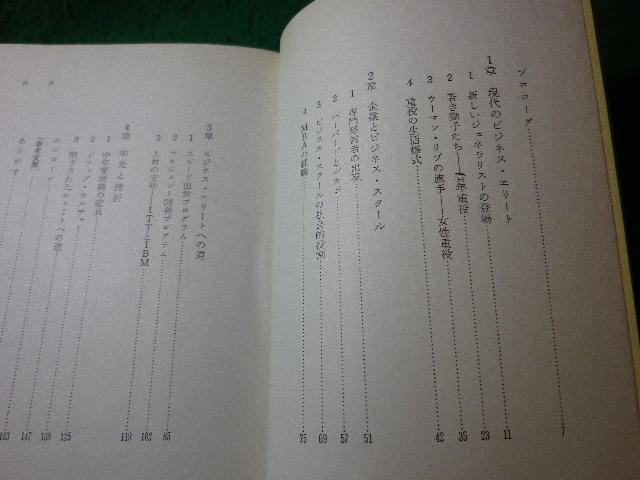 プロローグ 7
1章 現代のビジネス・エリート
1 新しいジェネラリストの登場 11
2 若き獅子たち——青年重役 23
3 ウーマン・リブの旗手——女性重役 35
4 重役の生活様式 42
2章 企業とビジネス・スクール
1 専門経営者の出現 51
2 ハーバードとシカゴ 57
3 ビジネス・スクールの社会的役割 69
4 MBAの就職 75
3章 ビジネス・エリートへの道
1 スピード出世プログラム
2 マネジメント開発プログラム 85
3 人材の宝庫——ITTとIBM 102
4章 栄光と挫折
1 中年管理職の 119
2 ドラッグ・カルチャー
3 閉ざされたエリートへの道 125
エピローグ 139
参考文献 147
あとがき 163